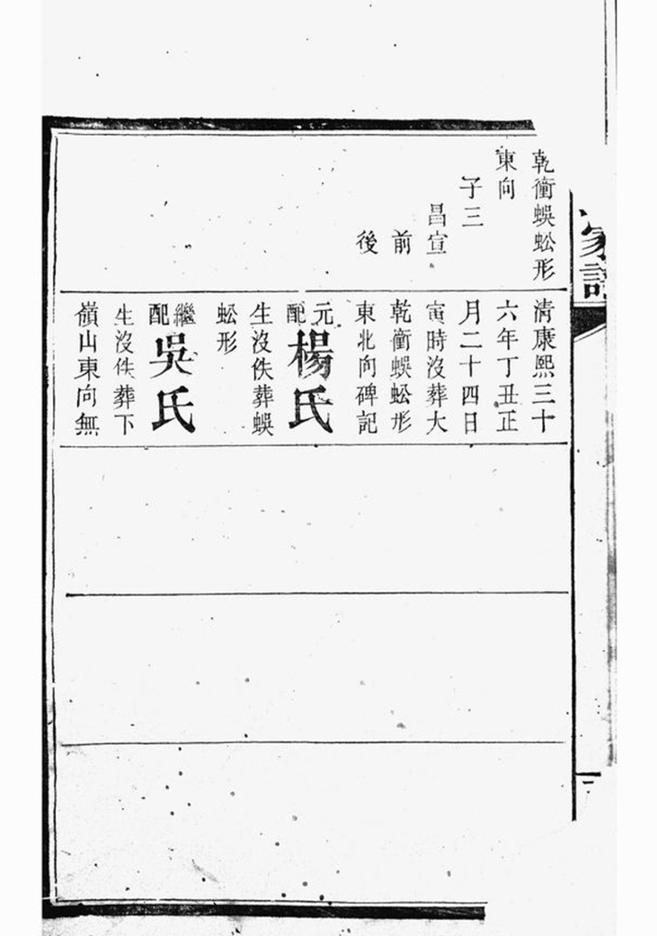 家譜
乾衝蜈蚣形
東向
子三
昌宣
前
後
清康熙三十
六年丁丑正
月二十四日
寅時沒葬大
乾衝蜈蚣形
東北向碑記
元配楊氏
生沒佚葬蜈
蚣形
繼配吳氏
生沒佚葬下
嶺山東向無